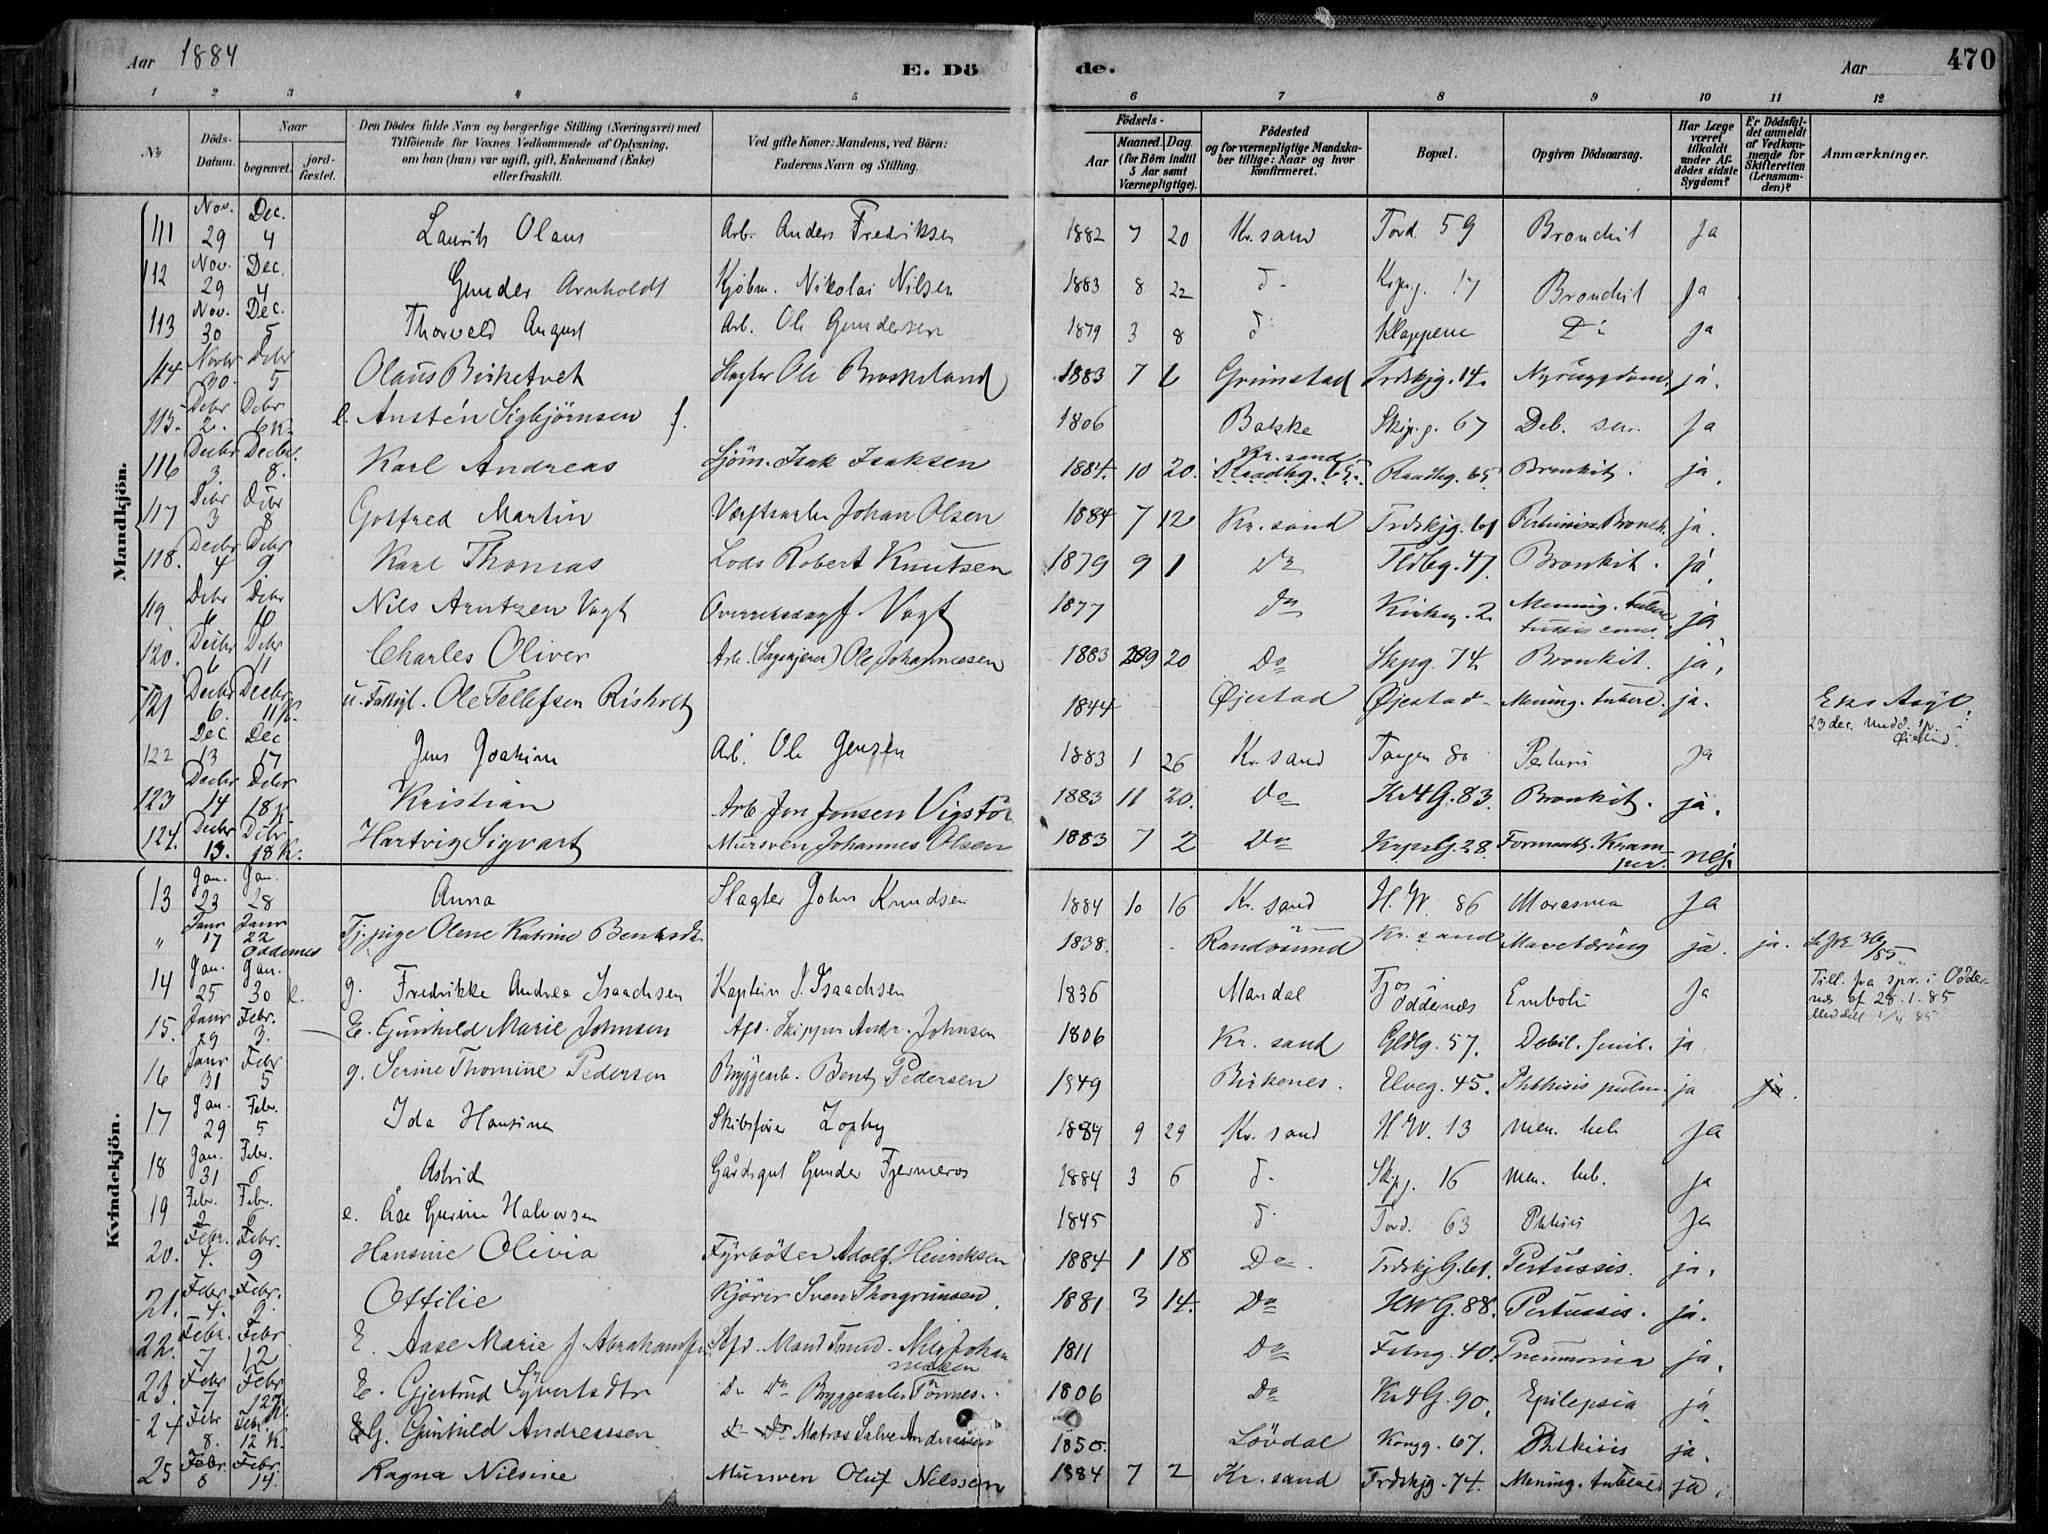 Aar 1884 E. Dö de. Aar 470
1 2 3 4 5 6 7 8 9 10 11 12
No. Döds-Datum. Naar begravet. jord-fæstet. Den Dödes fulde Navn og borgerlige Stilling (Næringsvei) med Tilföiende for Voxnes Vedkommende af Oplysning. om han (hun) var ugift, gift, Enkemand (Enke) eller fraskilt. Ved gifte Koner: Mandens, ved Börn: Faderens Navn og Stilling. Födsels- Aar Maaned. Dag. (for Börn indtil 5 Aar samt Værnepligtige). Födested og for værnepligtige Mandska-ber tillige: Naar og hvor konfirmeret. Bopæl. Opgiven Dödsaarsag. Har Læge været tilkaldt under Af-dödes sidste Sygdom? Er Dödsfal-det anmeldt af Vedkom-mende for Skifteretten (Lensman-den)? Anmærkninger.
Mandkjön.
111 Nov. 29 Dec. 4 Laurits Olaus Arb. Anders Fredriksen 1882 7 20 Kr. sand Tord. 59 Bronchit ja
112 Nov. 29 Dec. 4 Gunder Arnholdt Kjöbm. Nikolai Nilsen 1883 8 22 d- 17 Bronchit ja
113 Nov. 30 Dec. 5 Thorvald August Arb. Ole Gundersen 1879 3 8 d- Klappene Do ja
114 Novbr 30. Debr 5 Olaus Birketvet Slagter Ole Broskeland 1883 7 6 Grimstad Trdskjg. 14. Nyresygdom. ja.
115. Debr 2. Debr 6 K. e. Austén Sigbjørnsen f. 1806 Bakke Skip.g. 67 Deb. sen. ja
116 Decbr 3. Decbr. 8. Karl Andreas Sjöm. Isak Isaksen 1884. 10 20. Kr. sand Raadhg. 65. Raadhg. 65 Bronkit. ja.
117 Debr 3 Debr 8 Gotfred Martin Værftsarb. Johan Olsen 1884 7 12 Kr. sand Trdskjg. 61 Pertussis. Bronch. ja.
118. Decbr 4 Debr 9 Karl Thomas Lods Robert Knutsen 1879 9 1 Do 47. Bronkit. ja.
119. Debr 6 Debr 10 Nils Arntzen Vogt Vogt 1877 Do 2. Mening. tuberc. ja
120. Decbr 6 Debr 11 Charles Oliver Arb. Ole Johannesen 1883 9 20 Do Skpg. 74 Bronkit. ja.
121 Decbr 6. Decbr 11 K. u. Fattigl. Ole Tellefsen Risholt 1844 Øjestad Øjestad Mening. tuberc. ja. 23 dec. Øiestad.
122 Dec 13 Dec 17 Jens Joakim Arb. Ole Jensen 1883 1 26 Kr. sand Tangen 80 Pertussis ja
123 Decbr 14 Debr 18 K. Kristian Arb. Jon Jonsen Vigstöl 1883 11 20. Do Kr4G. 83. Bronkit. ja.
124. Decbr 13. Debr 18 K. Hartvig Sigvart Mursven Johannes Olsen 1883 7 2 Do KrprG. 28. Formentl. Kram-per. nej.
Kvindekjön.
13 Jan. 23 Jan. 28 Anna Slagter John Knudsen 1884 10 16 Kr. sand H. W. 86 Marasmus ja
" Janr 17 Janr 22 Oddernes Tj.pige Olene Katrine Bentsdtr 1838. Randøsund Kr. sand Mavetæring ja. ja.
14 Jan. 25 Jan. 30 e. g. Fredrikke Andrea Isaachsen Kaptein J. Isaachsen 1836 Mandal Oddernæs Emboli ja Till. fra spr. i Odder-næs af 28.1.85
15. Janr 29 Febr. 3. E. Gunhild Marie Johnsen Afd. Skipper Andr. Johnsen 1806 Kr. sand Gldlg. 57. Debil. senil. ja
16 Janr 31 Febr 5 g. Serine Thomine Pedersen Bryggearb. Bent Pedersen 1849 Birkenes. Elveg. 45. Phthisis pulm. ja ja.
17 Jan. 29 Febr. 5 Ida Hansine Skibsfører Zophy 1884 9 29 Kr. sand H W. 13 Men. tub. ja
18 Jan. 31 Febr. 6 Astrid Gårdsgut Gunder Fjermeros 1884 3 6 d- Skipg. 16 Men. tub. ja
19 Febr. 2 Febr. 6 e. Åse Gurine Halvorsen 1845 d- Tord. 63 Phthisis ja
20. Febr. 4. Febr. 9 Hansine Olivia Fyrböter Adolf Heinriksen 1884 1 18 Do. TrdskjG. 61. Pertussis. ja.
21. Febr. 4. Febr. 9. Ottilie Kjörer Sven Thorgrimsen. 1881 3 14. Do HWG. 88. Pertussis. ja.
22. Febr. 7 Febr 12 E. Aase Marie f Abrahamsen Afd. Mand Nils Johan-nesen 1811 Do Festng. 40. Pneumonia ja.
23. Febr 7 Febr 12 E. Gjertrud Syvertsdtr Do Do Bryggearb. Tönnes. 1806 Do Kr4G. 90. Epilepsia ja
24 Febr 8. Febr. 12 K. G. Gunhild Andreassen Matros Salve Andreassen 1850. Lövdal Kongg. 67. Phthisis ja.
25 Febr. 8 Febr. 14. Ragna Nilsine Mursven Oluf Nilssen 1884 7 2 Kr. sand Trdskjg. 74. Mening. tuberc. ja.